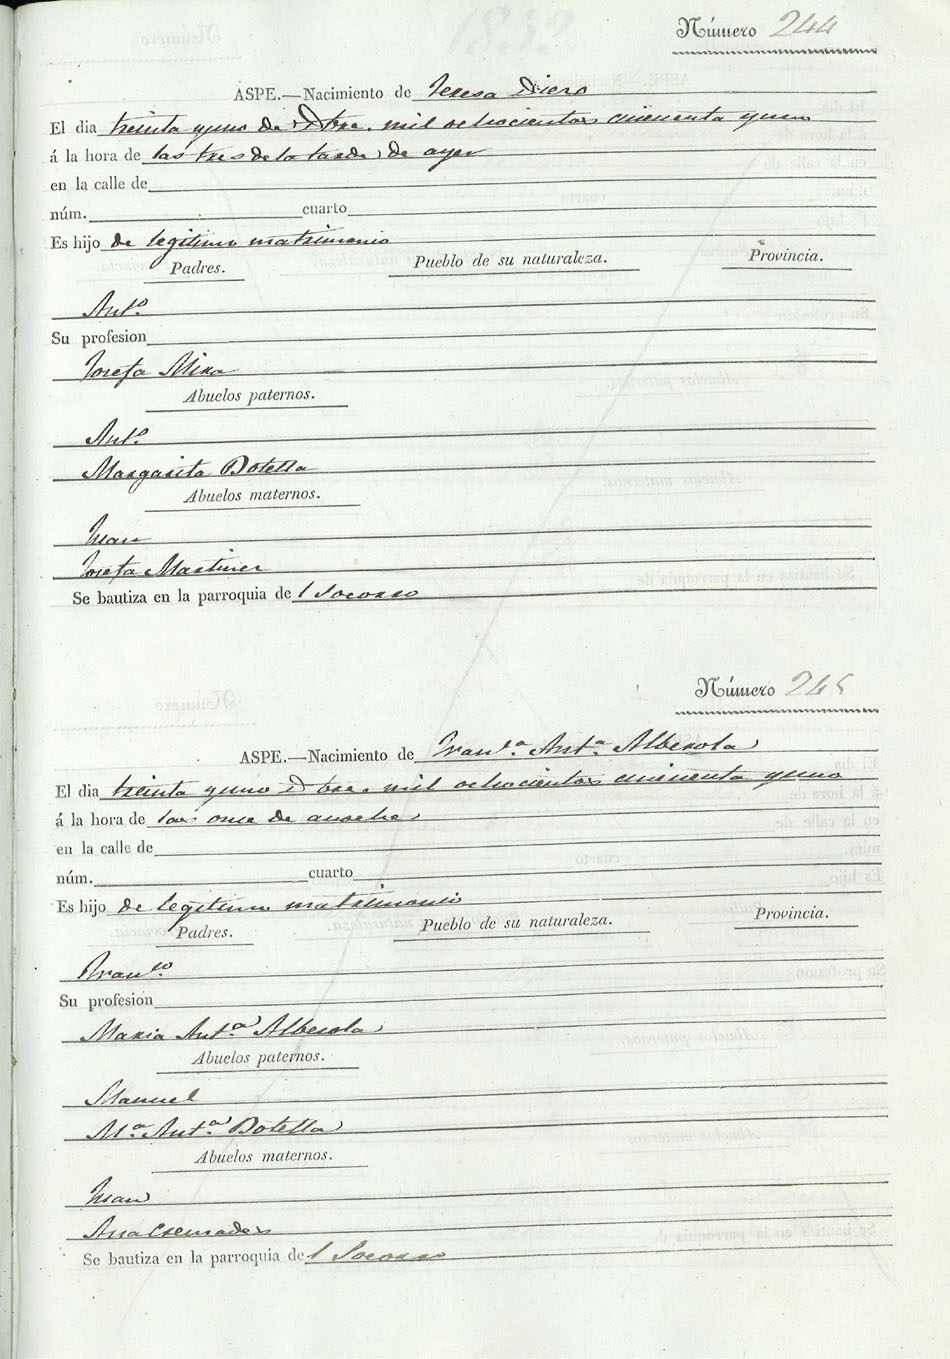 Número 244
ASPE.—Nacimiento de Teresa Diero
El dia treinta y uno de Dbre. mil ochocientos cincuenta y uno
á la hora de las tres de la tarde de ayer
en la calle de
núm. cuarto
Es hijo de legitimo matrimonio
Padres. Pueblo de su naturaleza. Provincia.
Antº
Su profesion
Josefa Mira
Abuelos paternos.
Antº
Margarita Botella
Abuelos maternos.
Juan
Josefa Martinez
Se bautiza en la parroquia de l Socorro
Número 245
ASPE.—Nacimiento de Franᶜᵃ Antᵃ Alberola
El dia treinta y uno Dbre. mil ochocientos cincuenta y uno
á la hora de las once de anoche
en la calle de
núm. cuarto
Es hijo de legitimo matrimonio
Padres. Pueblo de su naturaleza. Provincia.
Franᶜᵒ
Su profesion
Maria Antᵃ Alberola
Abuelos paternos.
Manuel
Mᵃ Antᵃ Botella
Abuelos maternos.
Juan
Ana Cremades
Se bautiza en la parroquia de l Socorro